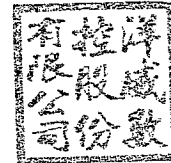 洋數
控股份
有限公司